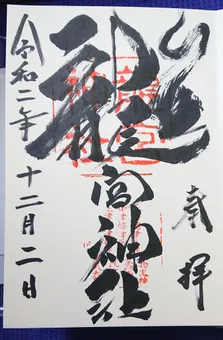 奉拝
龍宮神社
令和二年十二月二日